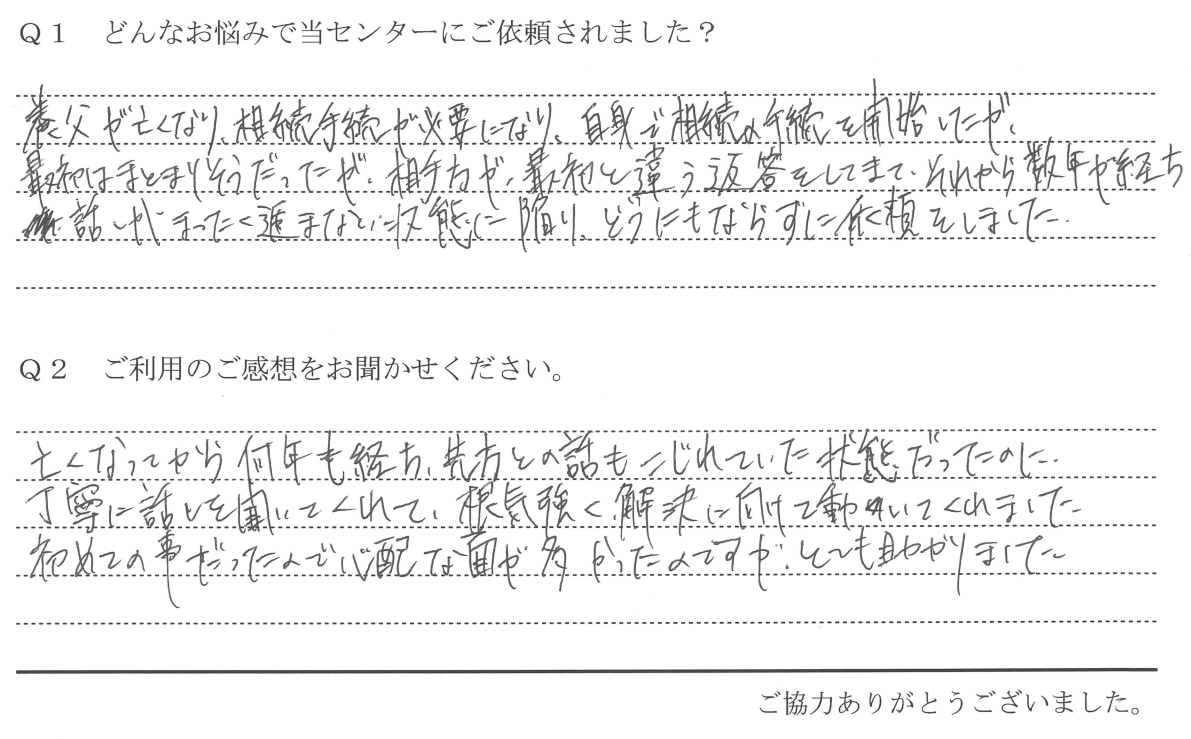 Q1 どんなお悩みで当センターにご依頼されました?
養父が亡くなり、相続手続が必要になり、自身で相続の手続を開始したが、
最初はまとまりそうだったが、相手方が、最初と違う返答をしてきて、それから数年が経ち
話しがまったく進まない状態に陥り、どうにもならずに依頼をしました。
Q2 ご利用のご感想をお聞かせください。
亡くなってから何年も経ち、先方との話もこじれていた状態だったのに、
丁寧に話しを聞いてくれて、根気強く解決に向けて動いてくれました
初めての事だったので心配な面が多かったのですが、とても助かりました
ご協力ありがとうございました。